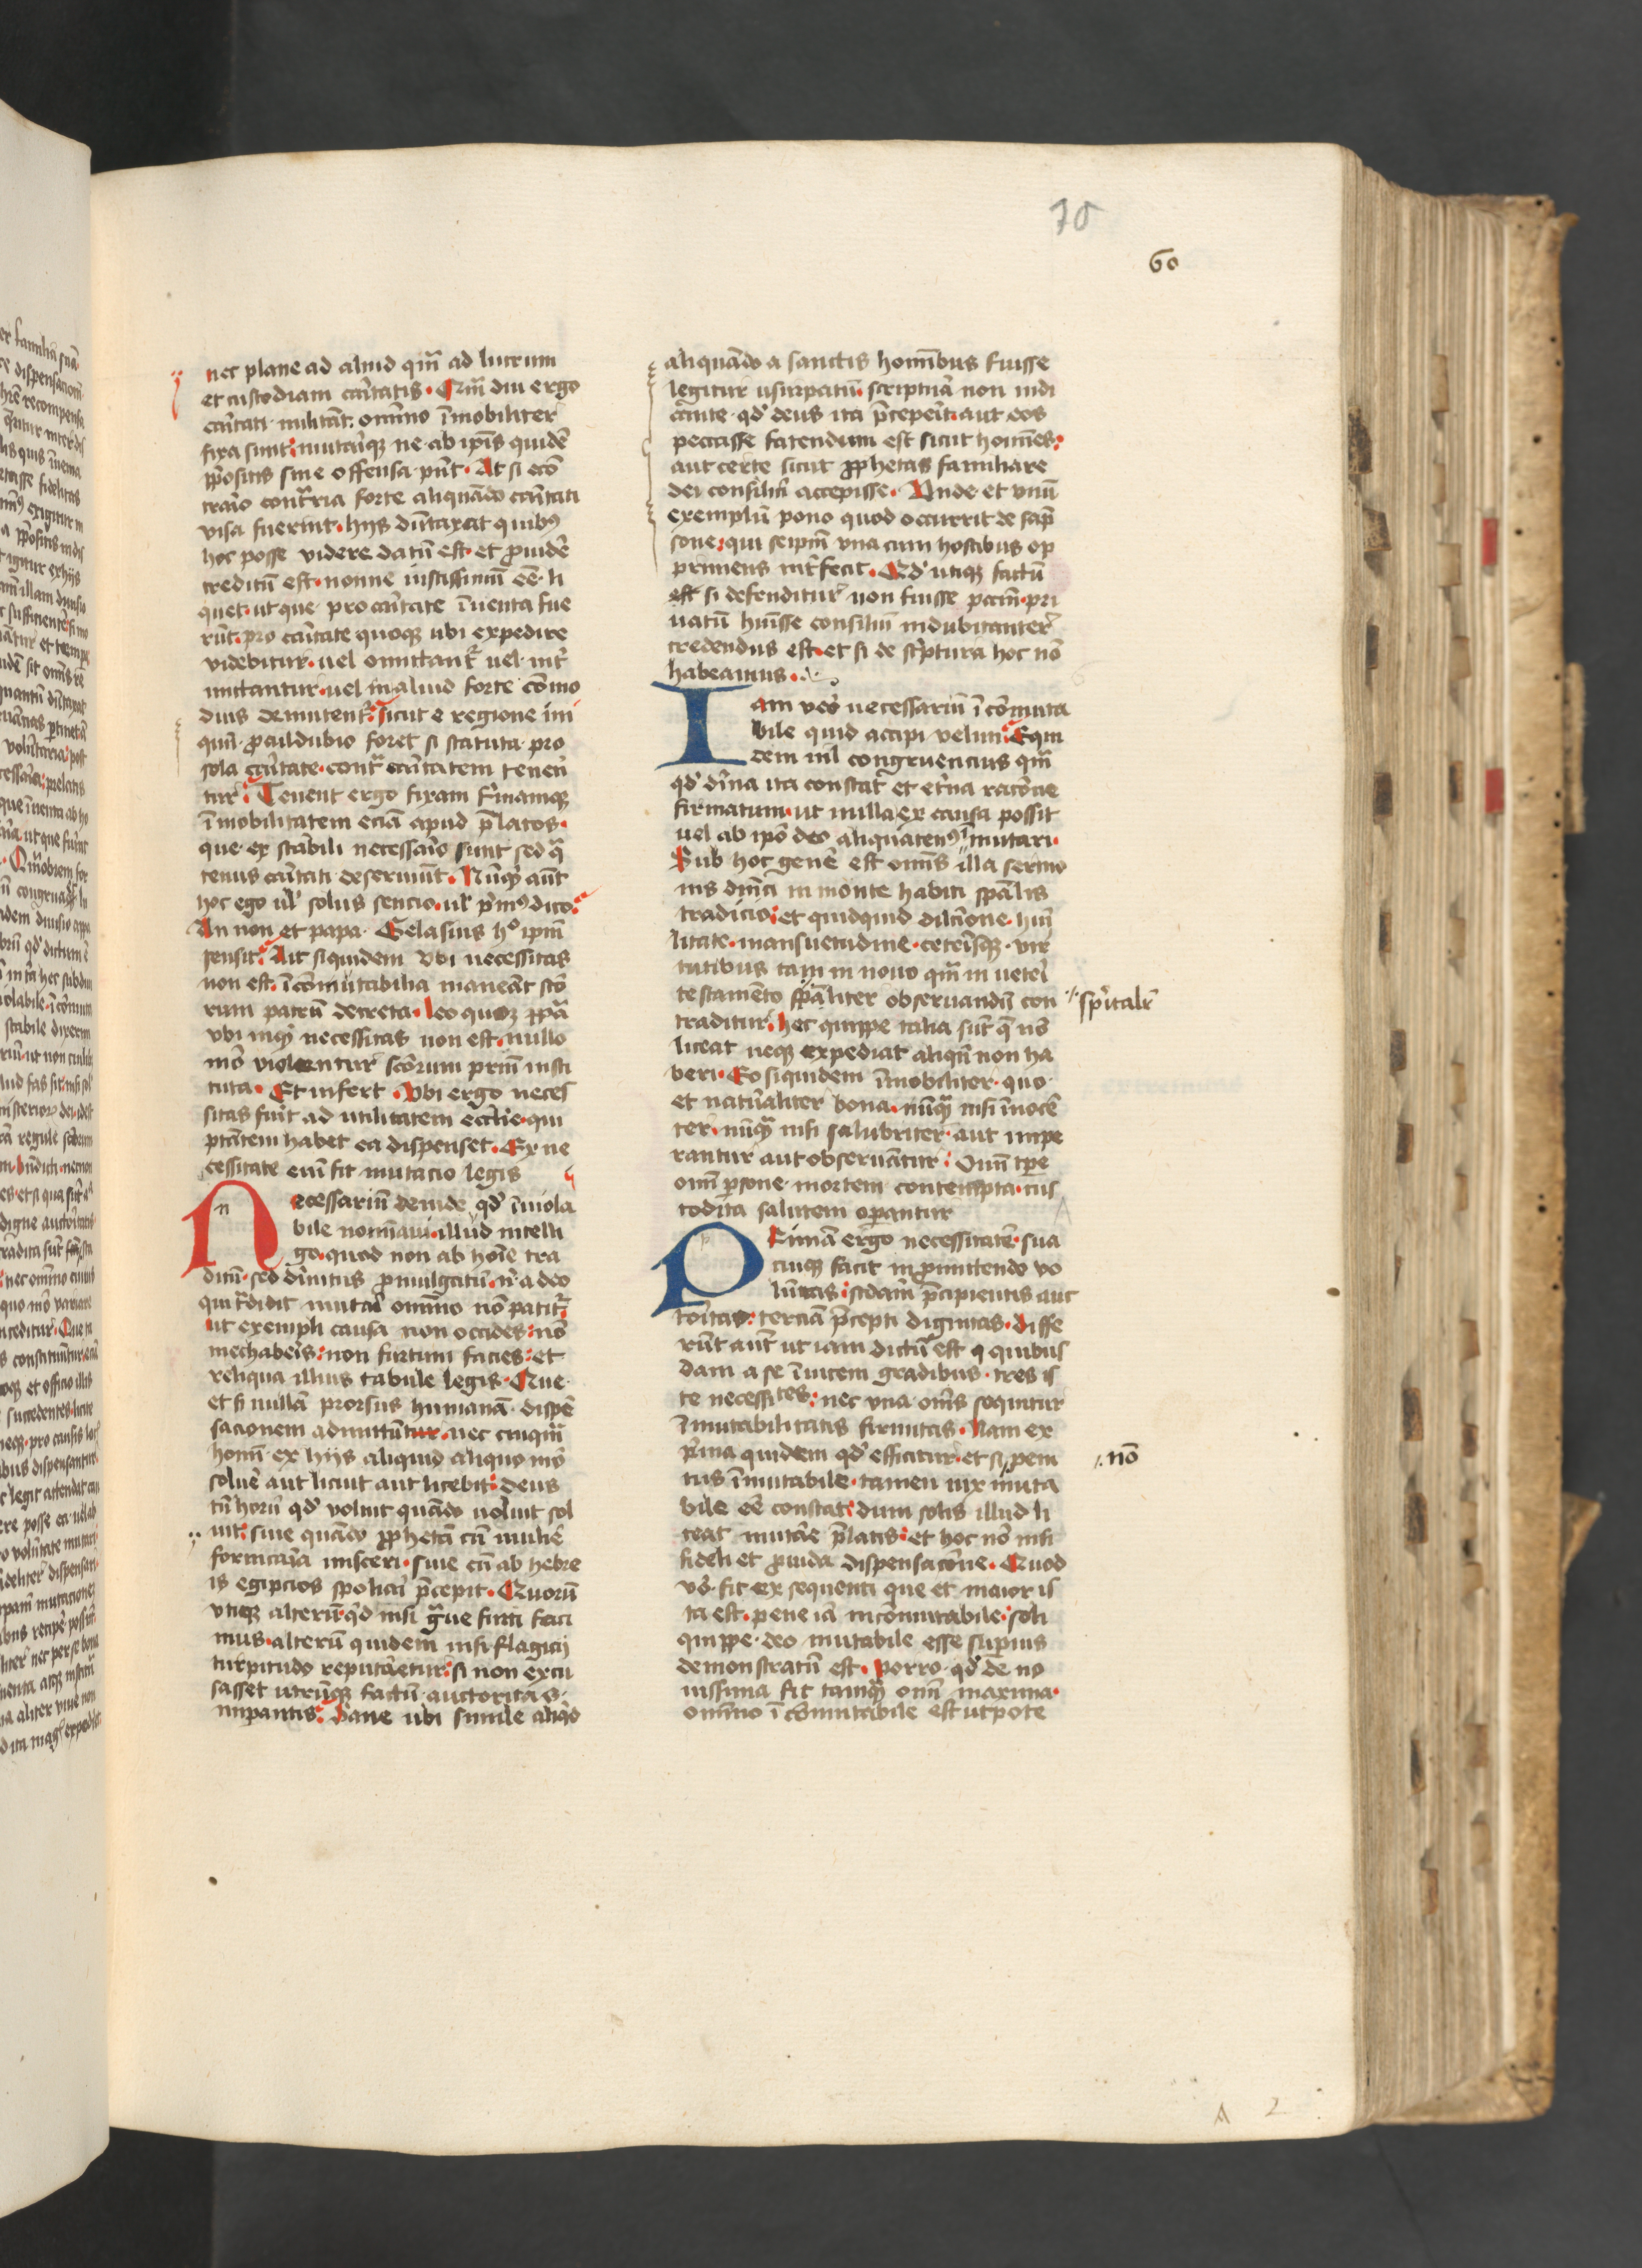 70
60
nec plane ad aliud qm̄ ad lucrum
et custodiam cãtatis. Qm̄ diu ergo
cãtati militãt. omĩno ĩmobiliter
fixa sunt. mutariqꝫ ne ab ip̃is quidẽ
p̃positis sine offensa p̃nt. At si ecõ
trario contraria forte aliquãdo cãtati
visa fuerint. hijs dũtaxat quibꝰ
hoc posse videre datũ est. et p̃uidẽ
creditũ est. nonne iustissimũ eẽ li
quet. ut que pro cãtate ĩuenta fue
rũt. pro cãtate quoqꝫ vbi expedire
videbitur. uel omittant᷑ uel int̃
mittantur. uel in aliud forte cõmo
dius demutent᷑. sicut e regione ini
quũ proculdubio foret si statuta pro
sola cãtate. cont̃ cãtatem teneñ
tur. Tenent ergo fixam firmamqꝫ
ĩmobilitatem eciã apud p̃latos.
que ex stabili necessãio sunt sed q̃
tenus cãtati deseruiũt. Nũqꝫ aũt
hoc ego ul̃ solus sencio. ul̃ p̃mꝰ dico.
An non et papa Gelasius hº ip̃m
sensit. Ait siquidem vbi necessitas
non est. ĩcõmutabilia maneãt scõ
rum patrũ decreta. leo quoqꝫ papa
vbi inqꝫ necessitas non est. nullo
mõ violentur scõrum pr̃m insti
tuta. Et infert. Vbi ergo neces
sitas fuit̃ ad utilitatem ecclie. qui
ptãtem habet ea dispenset. Ex ne
cessitate enĩ fit mutacio legis
Necessariũ deinde qď ĩuiola
bile nomĩaui. illud intelli
go. quod non ab hoĩe tra
ditũ. sed diuĩtus promulgatũ. nͥ a deo
qui tradidit mutari omĩno nõ patit᷑.
ut exempli causa non occides: nõ
mechaberis: non furtum facies: et
reliqua illius tabule legis. Que
et si nullã prorsus humanã dispẽ
sacionem admittũtur. nec cuiqm̄
homĩ ex hijs aliquid aliquo mõ
soluẽ aut licuit aut licebit: deus
tñ horũ qď voluit quãdo uoluit sol
uit. siue quãdo prophetã cũ muliẽ
fornicaria misceri. siue cũ ab hebre
is egipcios spoliari p̃cepit. Quorũ
vtiqꝫ alterũ. qd nisi g̃ue furti faci
mus. alterũ quidem nisi flagicij
turpitudo reputaretur. si non excu
sasset utrũqꝫ factũ auctoritas.
imp̃antis. Sane ubi simile aliqd
aliquãdo a sanctis homĩbus fuisse
legitur usurpatũ. scripturã non indi
cante. qď deus ita p̃cepeĩt. aut eos
peccasse fatendum est sicut homĩes.
aut certe sicut prophetas familiare
dei consiliũ accepisse. Vnde et vnũ
exemplũ pono quod occurrit de sãp
sone. qui seip̃m vna cum hostibus op
primens int̃fecit. Qď utiqꝫ factũ
est si defenditur non fuisse pccm̃. pri
uatũ huisse consiliũ indubitanter
credendus est. et si de sc̃ptura hoc nõ
habeamus.
Iam vero necessariũ ĩcõmuta
bile quid accipi velim. Equi
dem nil congruencius qm̄
qď diũna ita constat et etẽna racõne
firmatum. ut nulla ex causa possit
uel ab ip̃o deo aliquatenꝰ mutari.
Sub hoc genẽ est omĩs illa sermo
nis dñici in monte habiti spãlis
tradicio. et quidquid dilcõne. hũi
litate. mansuetudine. ceterisqꝫ vir
tutibus tam in nouo qm̄ in ueteri
testamẽto spãliter obseruandũ con
traditur. hec quippe talia sũt q̃ nõ
liceat neqꝫ expediat aliqñ non ha
beri. Eo siquidem ĩmobiliter. quo
et natũaliter bona. nũqm̄ nisi ĩnocẽ
ter. nũqm̄ nisi salubriter. aut impe
rantur aut obseruãtur. Omĩ tp̃e
omĩ p̃sone mortem contempta. cus
todita salutem operantur
Primã ergo necessitatẽ. sua
cuiqꝫ facit in promittendo vo
lũtas. scdam̃ p̃cipientis auc
toritas. terciã p̃cepti dignitas. Diffe
rũt aũt ut iam dictũ est. quibus
dam a se ĩuicem gradibus. tres is
te necessitates. nec vna omĩs sequitur
ĩmutabilitatis firmitas. Nam ex
p̃ma quidem qď efficitur. et si peni
tus ĩmutabile. tamen uix muta
bile eẽ constat. dum solis illud li
ceat mutãe p̃latis. et hoc nõ nisi
fideli et prouida dispensacõne. Quod
võ fit ex sequenti que et maior is
ta est. pene iã incõmutabile. soli
quippe deo mutabile esse superius
demonstratũ est. Porro qď de no
uissima fit tamqm̄ omĩ maxima.
omĩno ĩcõmutabile est utpote
spi̾talir̃
nõ
A 2